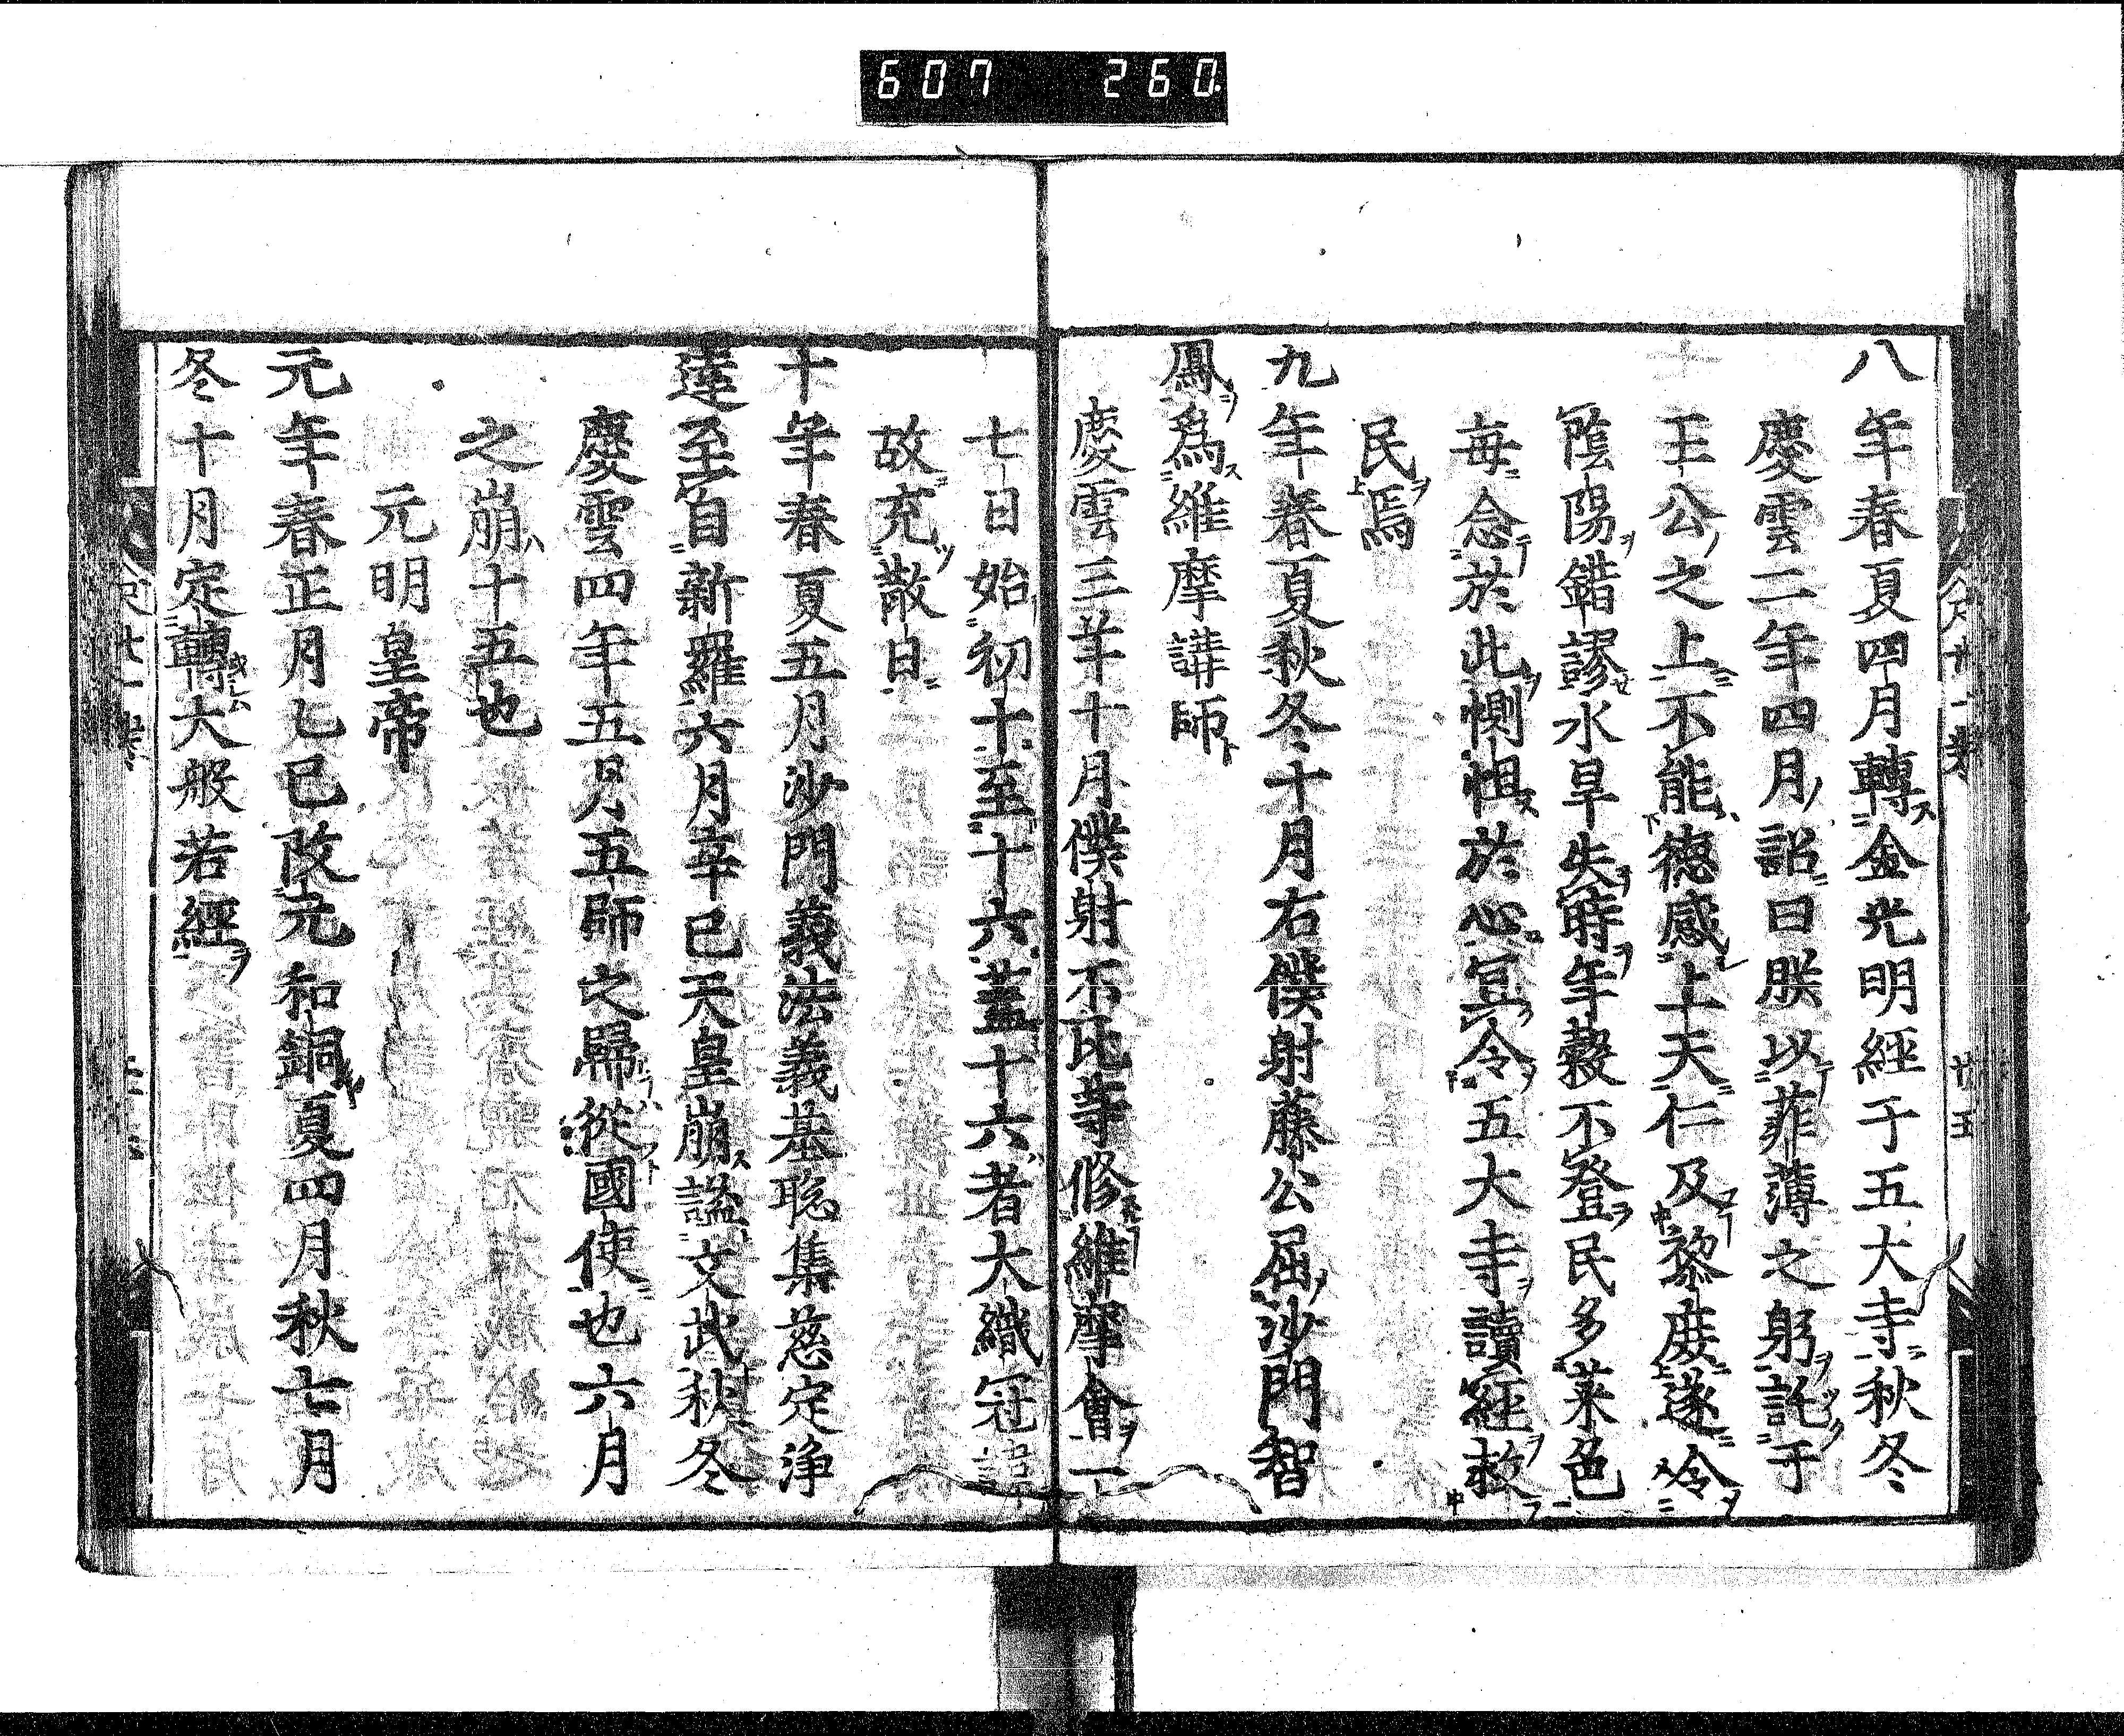 607 260
八年春夏四月轉金光明經于五大寺秋冬
慶雲二年四月詔曰朕以菲薄之躬託于
王公之上不能德感上天仁及黎庶遂令
陰陽錯謬水旱失時年穀不登民多菜色
每念於此惻怛於心宜令五大寺讀經救
民焉
九年春夏秋冬十月右僕射藤公屈沙門智
鳳爲維摩講師
慶雲三年十月僕射不比等修維摩會一
七日始初十至十六蓋十六者大織冠諱
故充散日
十年春夏五月沙門義法義基聡集慈定浄
達至自新羅六月辛巳天皇崩謚文武秋冬
慶雲四年五月五師之歸從國使也六月
之崩十五也
元明皇帝
元年春正月乙巳改元和銅夏四月秋七月
冬十月定轉大般若經